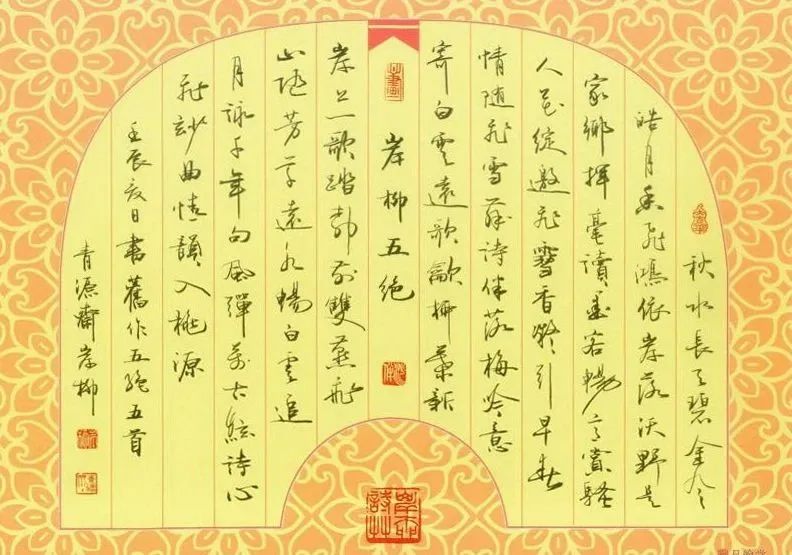 秋水長天碧金令
皓月香飛鴻依岸落沃野是
家鄉揮毫讀墨客暢意賞騷
人花綻邀飛雪香凝引早春
情隨飛雪舞詩伴落梅吟意
寄白雲遠歌新
岸柳五絕
岸歌踏雙燕飛
山隨芳草遠水暢白雲追
月詠千年句風彈萬古絃詩心
飛妙曲情韻入桃源
壬辰夏日書舊作五絕五首
青源齋岸柳